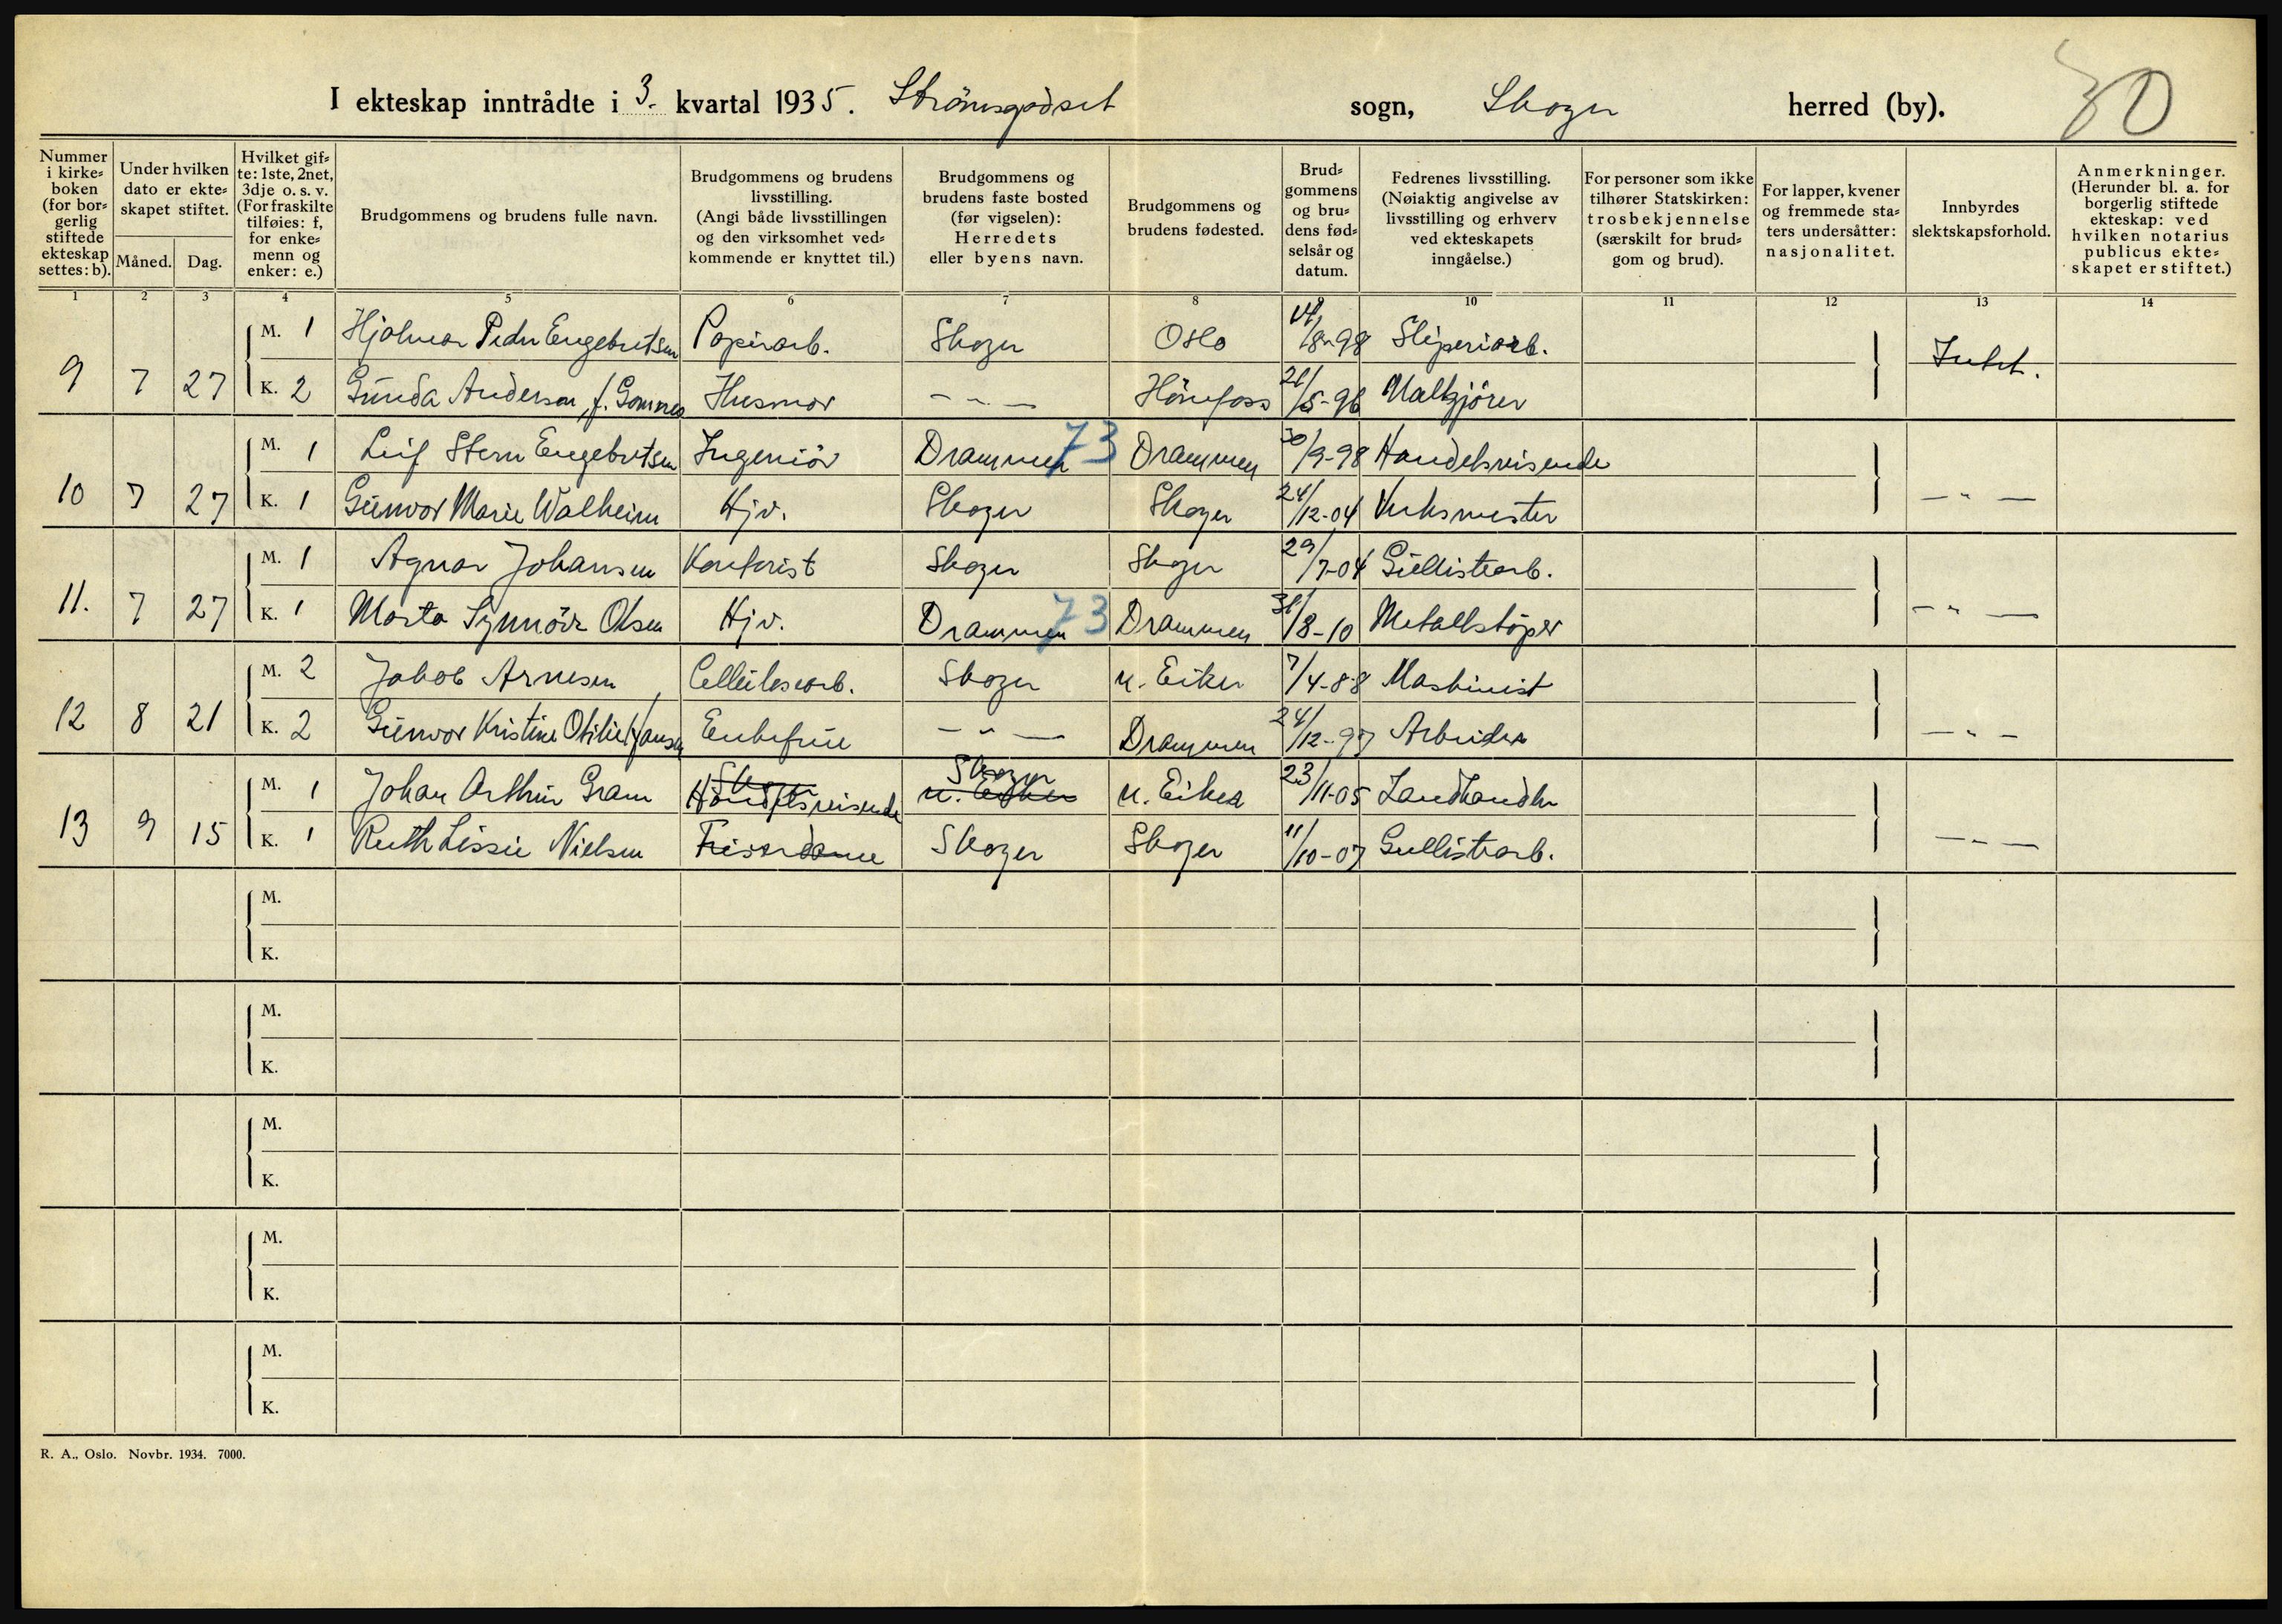 I ekteskap inntrådte i 3. kvartal 1935. Strömsgodset sogn, Skoger herred (by). 30
Nummer i kirke= boken (for bor= gerlig stiftede ekteskap settes: b).
Under hvilken dato er ekte= skapet stiftet.
Måned. Dag.
Hvilket gif= te: 1ste, 2net, 3dje o. s. v. (For fraskilte tilføies: f, for enke= menn og enker: e.)
Brudgommens og brudens fulle navn.
Brudgommens og brudens livsstilling. (Angi både livsstillingen og den virksomhet ved= kommende er knyttet til.)
Brudgommens og brudens faste bosted (før vigselen): Herredets eller byens navn.
Brudgommens og brudens fødested.
Brud= gommens og bru= dens fød= selsår og datum.
Fedrenes livsstilling. (Nøiaktig angivelse av livsstilling og erhverv ved ekteskapets inngåelse.)
For personer som ikke tilhører Statskirken: trosbekjennelse (særskilt for brud= gom og brud).
For lapper, kvener og fremmede sta= ters undersåtter: nasjonalitet.
Innbyrdes slektskapsforhold.
Anmerkninger. (Herunder bl. a. for borgerlig stiftede ekteskap: ved hvilken notarius publicus ekte= skapet er stiftet.)
1 2 3 4 5 6 7 8 9 10 11 12 13 14
M. 1 Hjalmar Peder Engebretsen Papirarb. Skoger Oslo 14/8-98 Sliperiarb.
9 7 27 K. 2 Gunda Andersen, f. Gomnes Husmor - " - Hönefoss 21/5-96 Malkjører Intet.
M. 1 Leif Stern Engebretsen Ingeniör Drammen 73 Drammen 30/9-98 Handelsreisende
10 7 27 K. 1 Gunvor Marie Walheim Hjv. Skoger Skoger 24/12-04 Verksmester - " -
M. 1 Agnar Johansen Kontorist Skoger Skoger 29/7-04 Gullistearb.
11. 7 27 K. 1 Marta Synnöve Olsen Hjv. Drammen 73 Drammen 31/8-10 Metallstöper - " -
M. 2 Jakob Arnesen Cellulosearb. Skoger n. Eiker 7/4-88 Maskinist
12 8 21 K. 2 Gunvor Kristine Otilie Hansen Enkefrue - " - Drammen 24/12-97 Arbeider - " -
M. 1 Johan Arthur Gram Skoger Handelsreisende Skoger n. Eiker n. Eiker 23/11-05 Landhandler
13 9 15 K. 1 Ruth Lissie Nielsen Friserdame Skoger Skoger 11/10-07 Gullistearb. - " -
M.
K.
M.
K.
M.
K.
M.
K.
M.
K.
R. A., Oslo. Novbr. 1934. 7000.